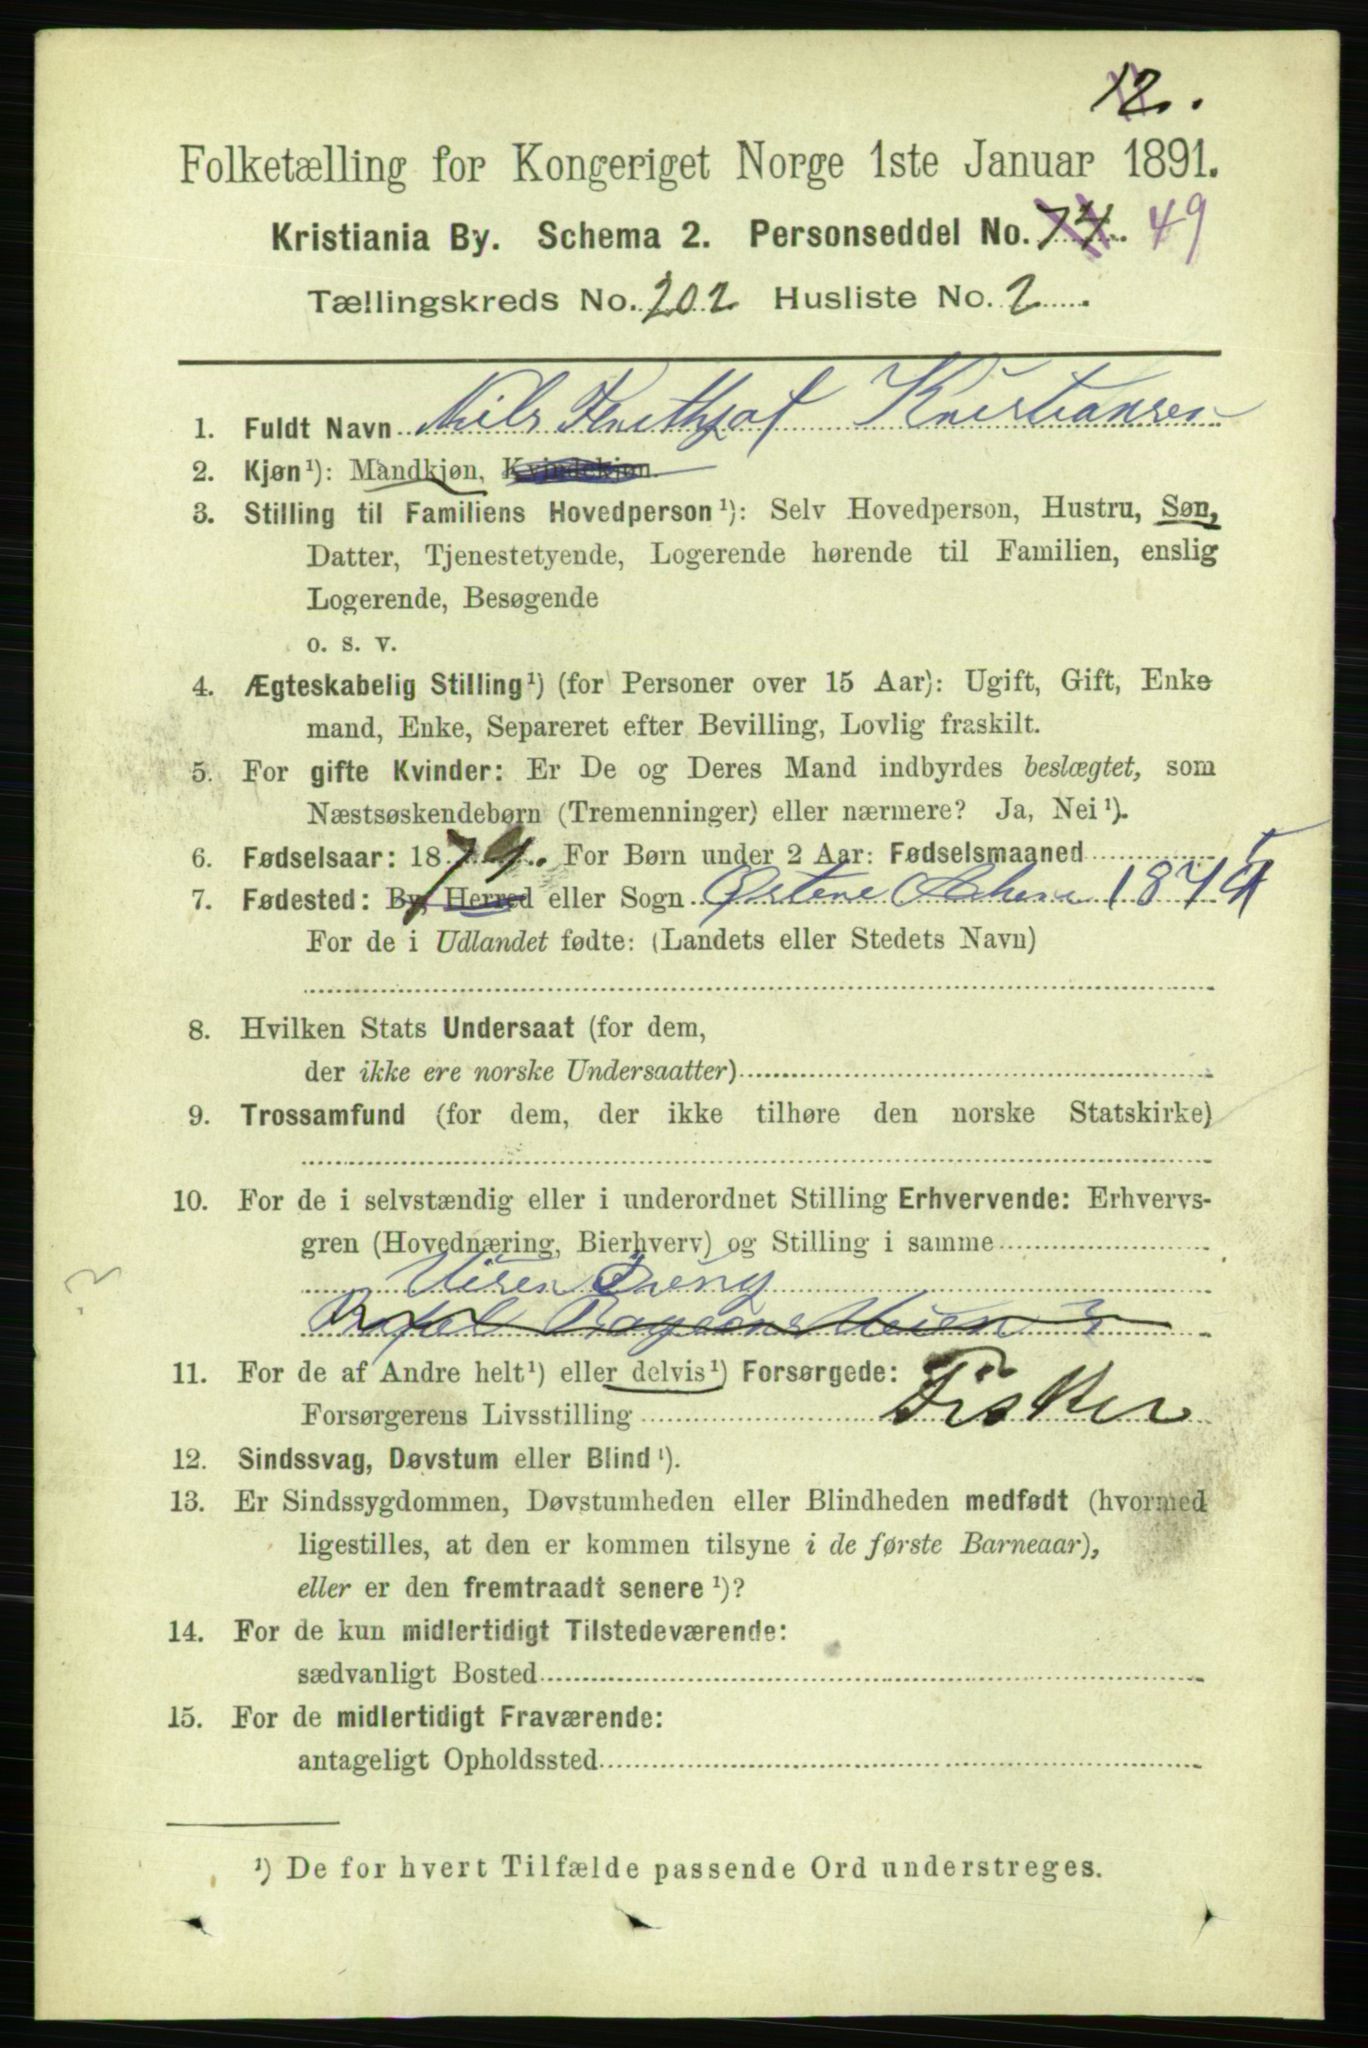 12.
Folketælling for Kongeriget Norge 1ste Januar 1891.
Kristiania By. Schema 2. Personseddel No. 74. 49
Tællingskreds No. 202 Husliste No. 2
1. Fuldt Navn Nils Kristiansen
2. Kjøn¹): Mandkjøn, Kvindekjøn.
3. Stilling til Familiens Hovedperson¹): Selv Hovedperson, Hustru, Søn,
Datter, Tjenestetyende, Logerende hørende til Familien, enslig
Logerende, Besøgende
o. s. v.
4. Ægteskabelig Stilling¹) (for Personer over 15 Aar): Ugift, Gift, Enke
mand, Enke, Separeret efter Bevilling, Lovlig fraskilt.
5. For gifte Kvinder: Er De og Deres Mand indbyrdes beslægtet, som
Næstsøskendebørn (Tremenninger) eller nærmere? Ja, Nei¹).
6. Fødselsaar: 187 For Børn under 2 Aar: Fødselsmaaned
7. Fødested: By, Herred eller Sogn Østene 187
For de i Udlandet fødte: (Landets eller Stedets Navn)
8. Hvilken Stats Undersaat (for dem,
der ikke ere norske Undersaatter)
9. Trossamfund (for dem, der ikke tilhøre den norske Statskirke)
10. For de i selvstændig eller i underordnet Stilling Erhvervende: Erhvervs-
gren (Hovednæring, Bierhverv) og Stilling i samme
11. For de af Andre helt¹) eller delvis¹) Forsørgede:
Forsørgerens Livsstilling Fisker
12. Sindssvag, Døvstum eller Blind¹).
13. Er Sindssygdommen, Døvstumheden eller Blindheden medfødt (hvormed
ligestilles, at den er kommen tilsyne i de første Barneaar),
eller er den fremtraadt senere¹)?
14. For de kun midlertidigt Tilstedeværende:
sædvanligt Bosted
15. For de midlertidigt Fraværende:
antageligt Opholdssted
¹) De for hvert Tilfælde passende Ord understreges.